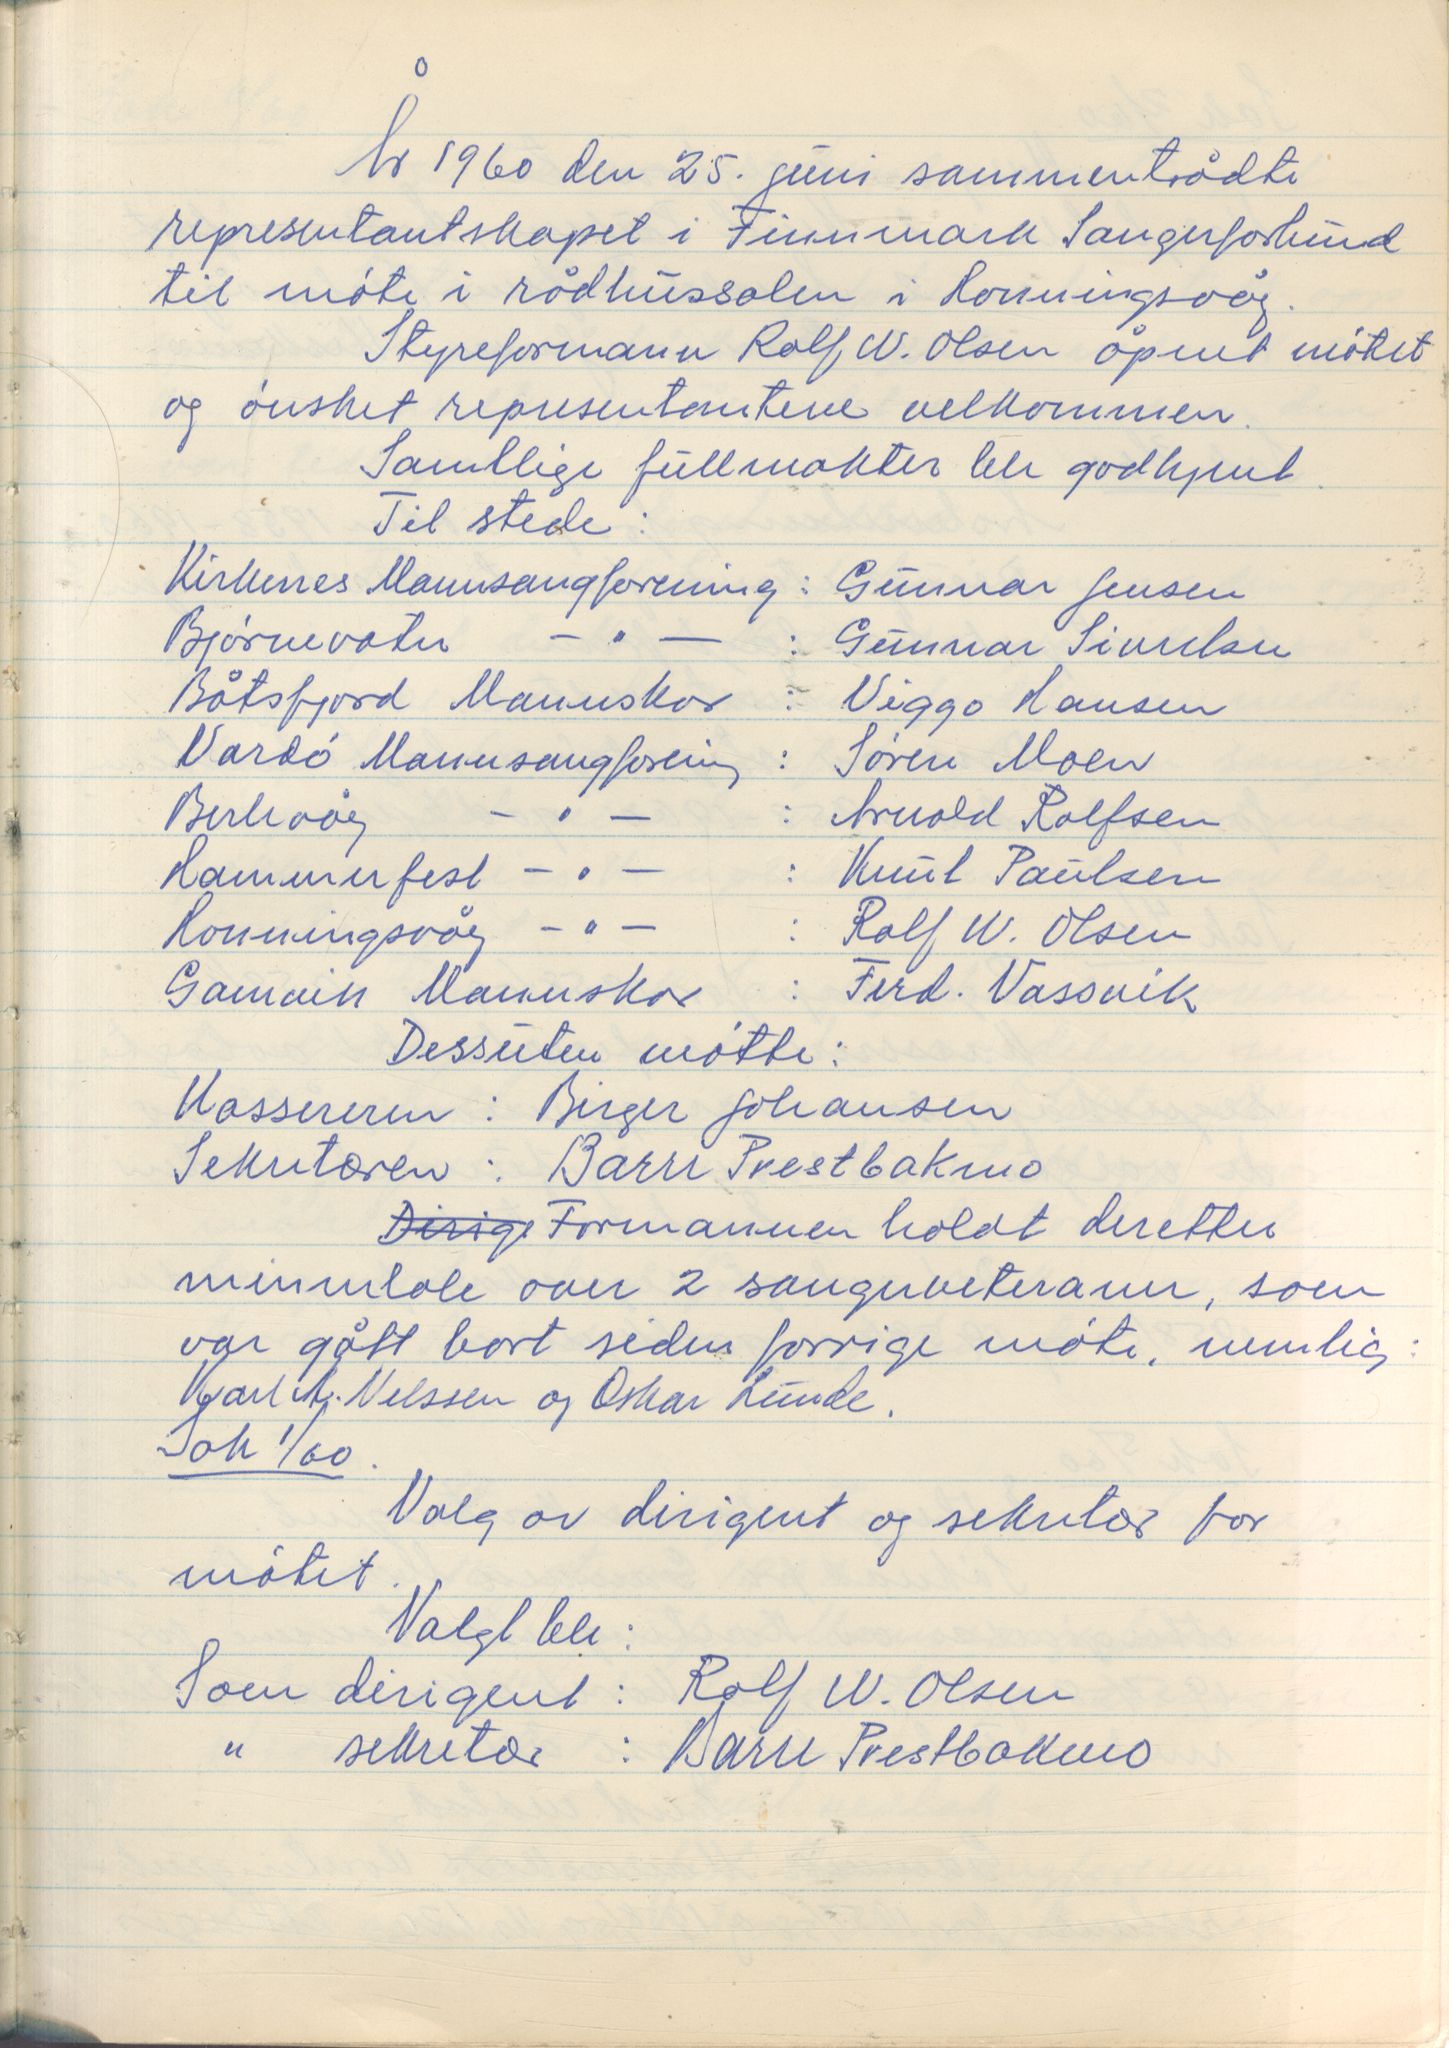 År 1960 den 25. juni sammentrådte
representantskapet i Finnmark Sangerforbund
til møte i rådhussalen i Honningsvåg.
Styreformann Rolf W. Olsen åpnet møtet
og ønsket representantene velkommen.
Samtlige fullmakter ble godkjent.
Til stede:
Kirkenes Mannsangforening : Gunnar Jensen
Bjørnevatn — " — : Gunnar Sivertsen
Båtsfjord Mannskor : Viggo Hansen
Vardø Mannsangforening : Søren Moen
Berlevåg — " — : Arnold Rolfsen
Hammerfest — " — : Knut Paulsen
Honningsvåg — " — : Rolf W. Olsen
Gamvik Mannskor : Ferd. Vassvik
Dessuten møtte:
Kassereren : Birger Johansen
Sekretæren : Barre Prestbakmo
Dirige Formannen holdt deretter
minnetale over 2 sangerveteraner, som
var gått bort siden forrige møte, nemlig:
Karl A. Nelssen og Oskar Lunde.
Sak 1/60.
Valg av dirigent og sekretær for
møtet.
Valgt ble:
Som dirigent : Rolf W. Olsen
" sekretær : Barre Prestbakmo